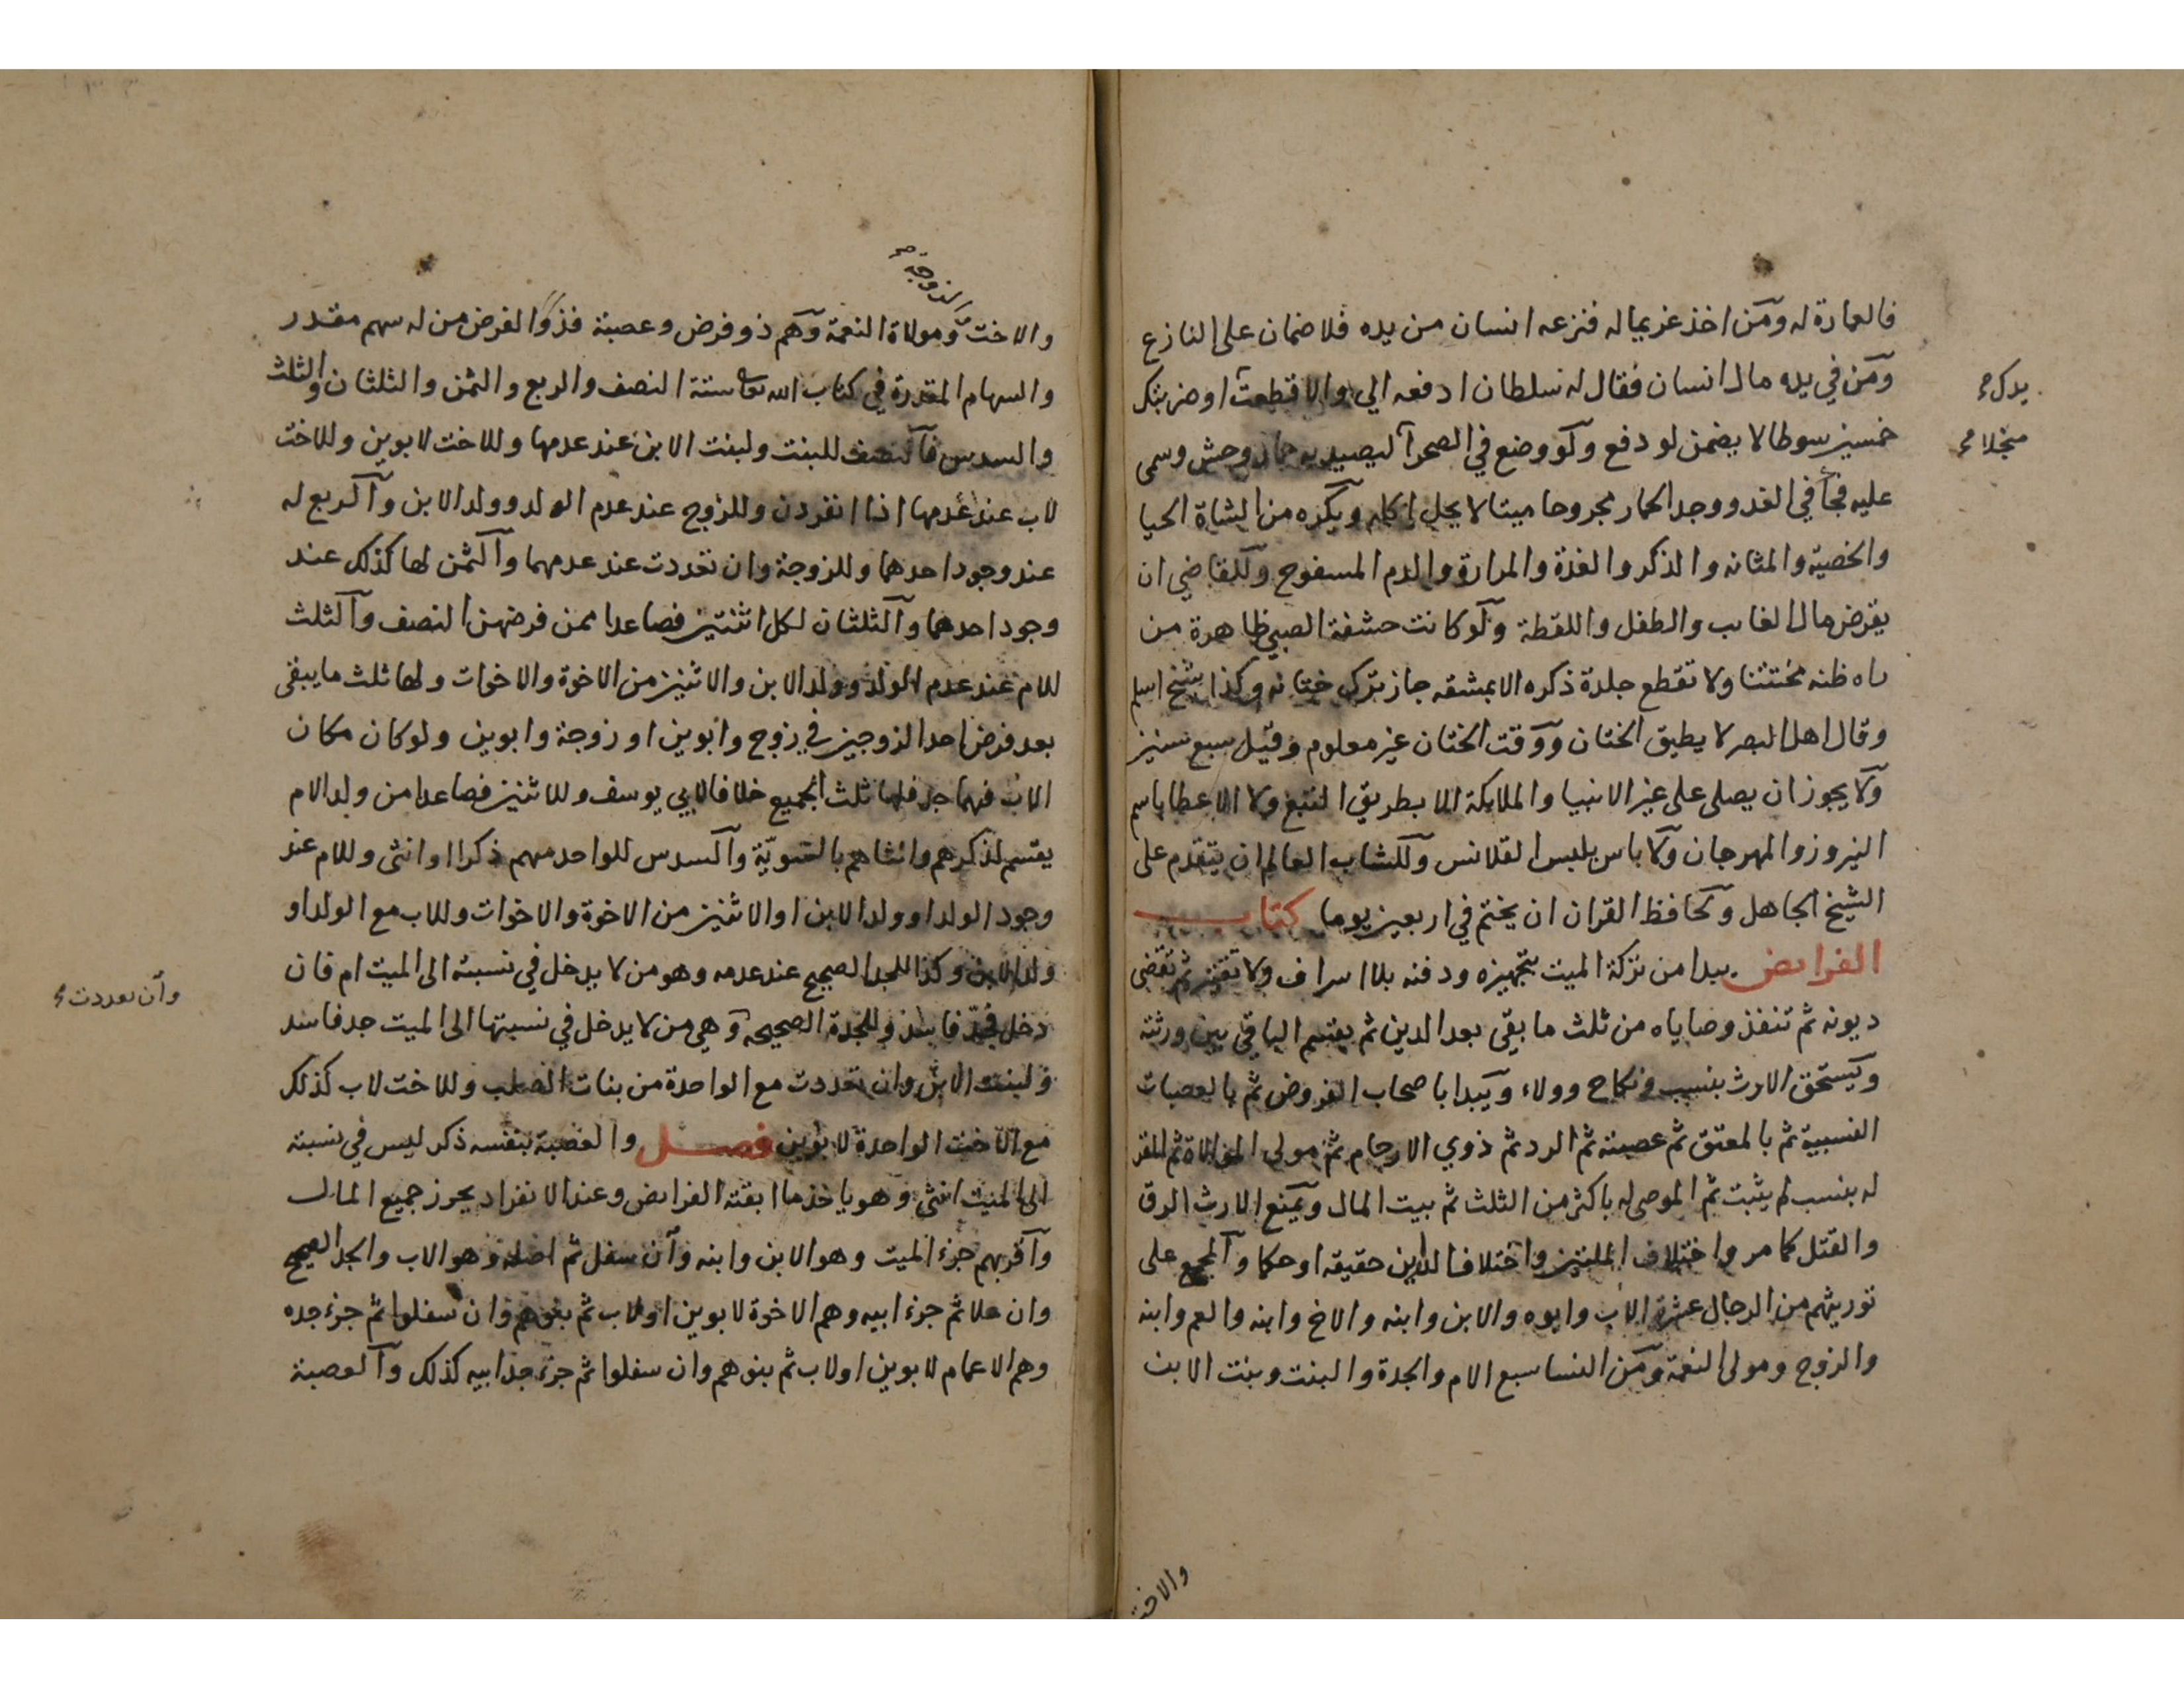 فالعمارة له ومن اخذ غريما له فنزعه انسان من يده فلا ضمان على النازع
ومن في يده مال انسان فقال له سلطان ادفعه الي والا قطعت او ضربتك
يدك صح
خمسين سوطا لا يضمن لو دفع ولو وضع في الصحرآ ليصيد به حمار وحش وسمى
منجلا صح
عليه فجآ في الغد ووجد الحمار مجروحا ميتا لا يحل اكله ويكره من الشاة الحيا
والخصية والمثانه والذكر والغدة والمرارة والدم المسفوح وللقاضي ان
يقرض مال الغاىب والطفل واللقطة ولو كانت حشفة الصبي ظاهرة من
راه ظنه مختتنا ولا تقطع جلدة ذكره الا بمشقه جاز ترك ختانه وكذا شيخ اسلم
وقال اهل البصر لا يطيق الختان ووقت الختان غير معلوم وقيل سبع سنين
ولا يجوز ان يصلى على غير الانبيا والملايكة الا بطريق التبع ولا الاعطا باسم
النيروز والمهرجان ولا باس بلبس القلانس وللشاب العالم ان يتقدم على
الشيخ الجاهل ولحافظ القران ان يختم في اربعين يوما كتاب
الفرايض يبدا من تركة الميت بتجهيزه ودفنه بلا اسراف ولا تقتير ثم تقضى
ديونه ثم تنفذ وصاياه من ثلث ما بقي بعد الدين ثم يقسم الباقي بين ورثته
ويستحق الارث بنسب ونكاح وولاء ويبدا باصحاب الفروض ثم بالعصبات
النسبية ثم بالمعتق ثم عصبته ثم الرد ثم ذوي الارحام ثم مولى الموالاة ثم المقر
له بنسب لم يثبت ثم الموصى له باكثر من الثلث ثم بيت المال ويمنع الارث الرق
والقتل كما مر واختلاف الملتين واختلاف الدارين حقيقه او حكما والمجمع على
توريثهم من الرجال عشرة الاب وابوه والابن وابنه والاخ وابنه والعم وابنه
والزوج ومولى النعمة ومن النسا سبع الام والجدة والبنت وبنت الابن
والاخت
والزوجة صح
والاخت ومولاة النعمة وهم ذو فرض وعصبة فذو الفرض من له سهم مقدر
والسهام المقدرة في كتاب الله تعا ستة النصف والربع والثمن والثلثان والثلث
والسدس فالنصف للبنت ولبنت الابن عند عدمها وللاخت لابوين وللاخت
لاب عند عدمها اذا انفردن وللزوج عند عدم الولد وولد الابن والربع له
عند وجود احدهما وللزوجة وان تعددت عند عدمهما والثمن لها كذلك عند
وجود احدهما والثلثان لكل اثنتين فصاعدا ممن فرضهن النصف والثلث
للام عند عدم الولد وولد الابن والاثنين من الاخوة والاخوات ولها ثلث ما يبقى
بعد فرض احد الزوجين في زوج وابوين او زوجة وابوين ولو كان مكان
الاب فيهما جد فلها ثلث الجميع خلافا لابي يوسف وللاثنين فصاعدا من ولد الام
يقسم لذكرهم وانثاهم بالسويّة والسدس للواحد منهم ذكرا او انثى وللام عند
وجود الولد او ولد الابن او الاثنين من الاخوة والاخوات وللاب مع الولد او
ولد الابن وكذا للجد الصحيح عند عدمه وهو من لا يدخل في نسبته الى الميت ام فان
وان تعددت صح
دخل فجدّ فاسد وللجدة الصحيحه وهي من لا يدخل في نسبتها الى الميت جد فاسد
ولبنت الابن وان تعددت مع الواحدة من بنات الصلب وللاخت لاب كذلك
مع الاخت الواحدة لابوين فصل والعصبة بنفسه ذكر ليس في نسبته
الى الميت انثى وهو ياخذ ما ابقته الفرايض وعند الانفراد يحرز جميع المال
واقربهم جزء الميت وهو الابن وابنه وان سفل ثم اصله وهو الاب والجد الصحيح
وان علا ثم جزء ابيه وهم الاخوة لابوين او لاب ثم بنوهم وان سفلوا ثم جزء جده
وهم الاعمام لابوين او لاب ثم بنوهم وان سفلوا ثم جزء جد ابيه كذلك والعصبة